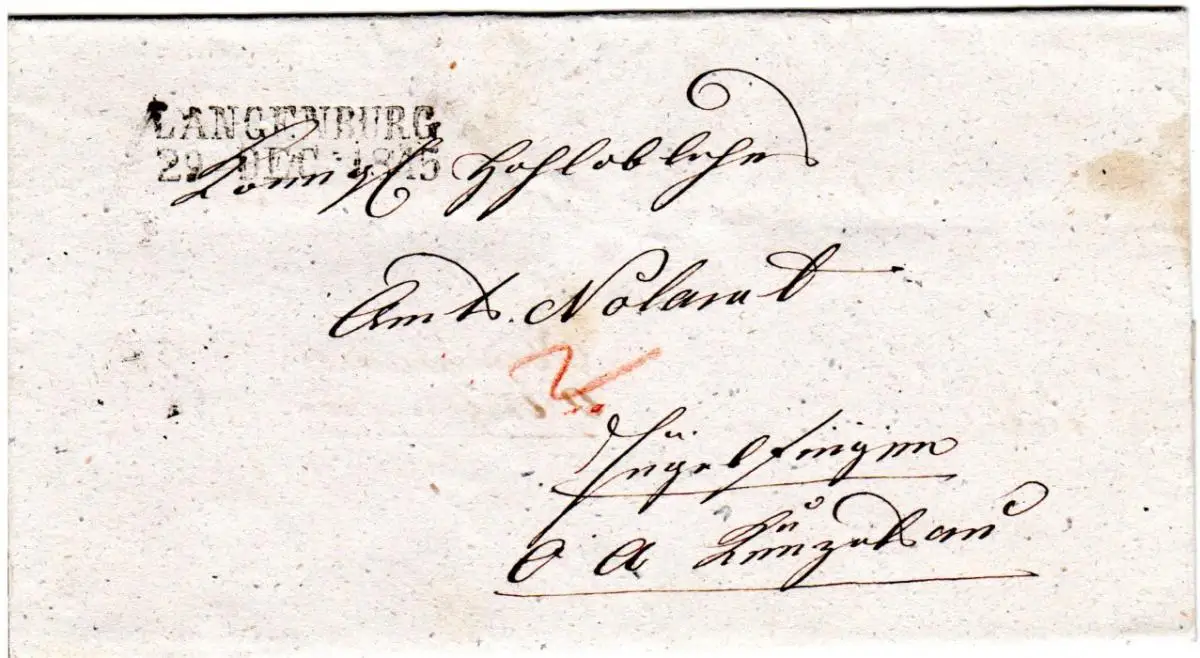 LANGENBURG
29. DEC. 1845
Königl Hochlöbliches
Amts. Notariat
Ingelfingen
O A Künzelsau